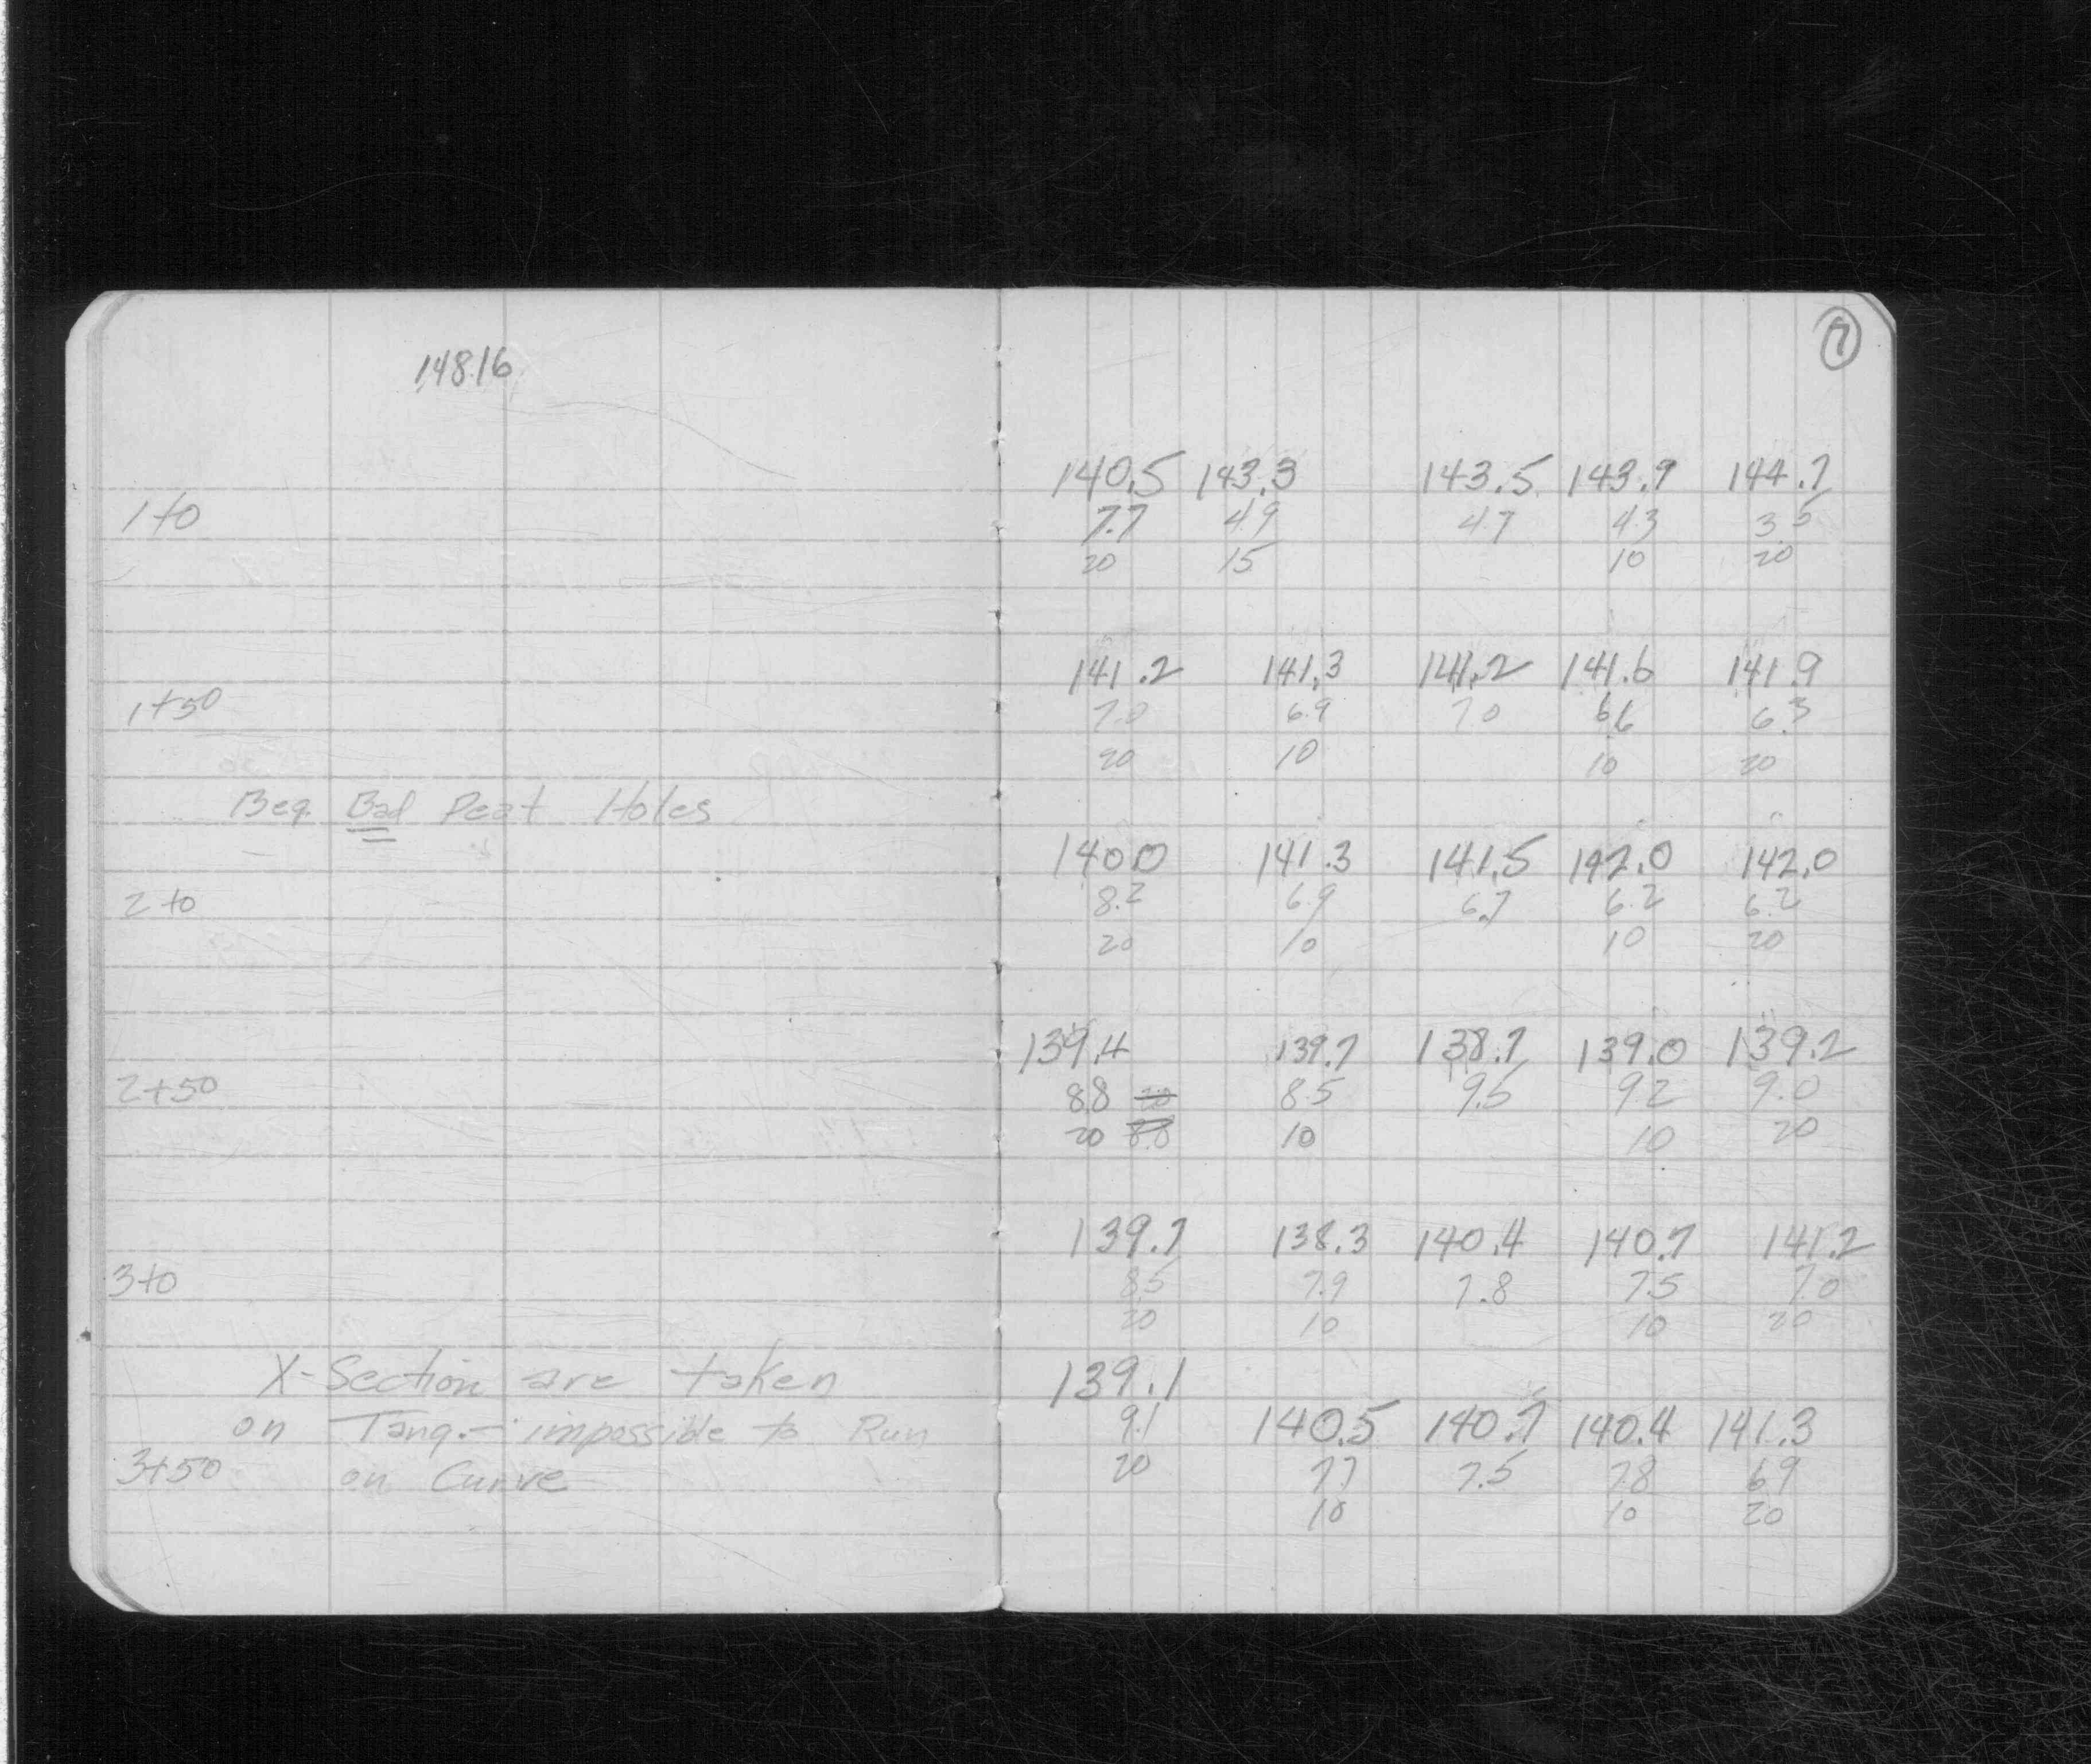 148.16
⑦
140.5 143.3 143.5 143.9 144.7
1+0 7.7 4.9 4.7 4.3 3.5
20 15 10 20
141.2 141.3 141.2 141.6 141.9
1+50 7.0 6.9 7.0 6.6 6.3
20 10 10 20
Beg. Bad Peat Holes
140.0 141.3 141.5 142.0 142.0
2+0 8.2 6.9 6.7 6.2 6.2
20 10 10 20
139.4 139.7 138.7 139.0 139.2
2+50 8.8 8.5 9.5 9.2 9.0
20 8.8 10 10 20
139.7 138.3 140.4 140.7 141.2
3+0 8.5 7.9 7.8 7.5 7.0
20 10 10 20
X-Section are taken 139.1
on Tang.- impossible to Run 9.1 140.5 140.7 140.4 141.3
3+50 on Curve 20 7.7 7.5 7.8 6.9
10 10 20